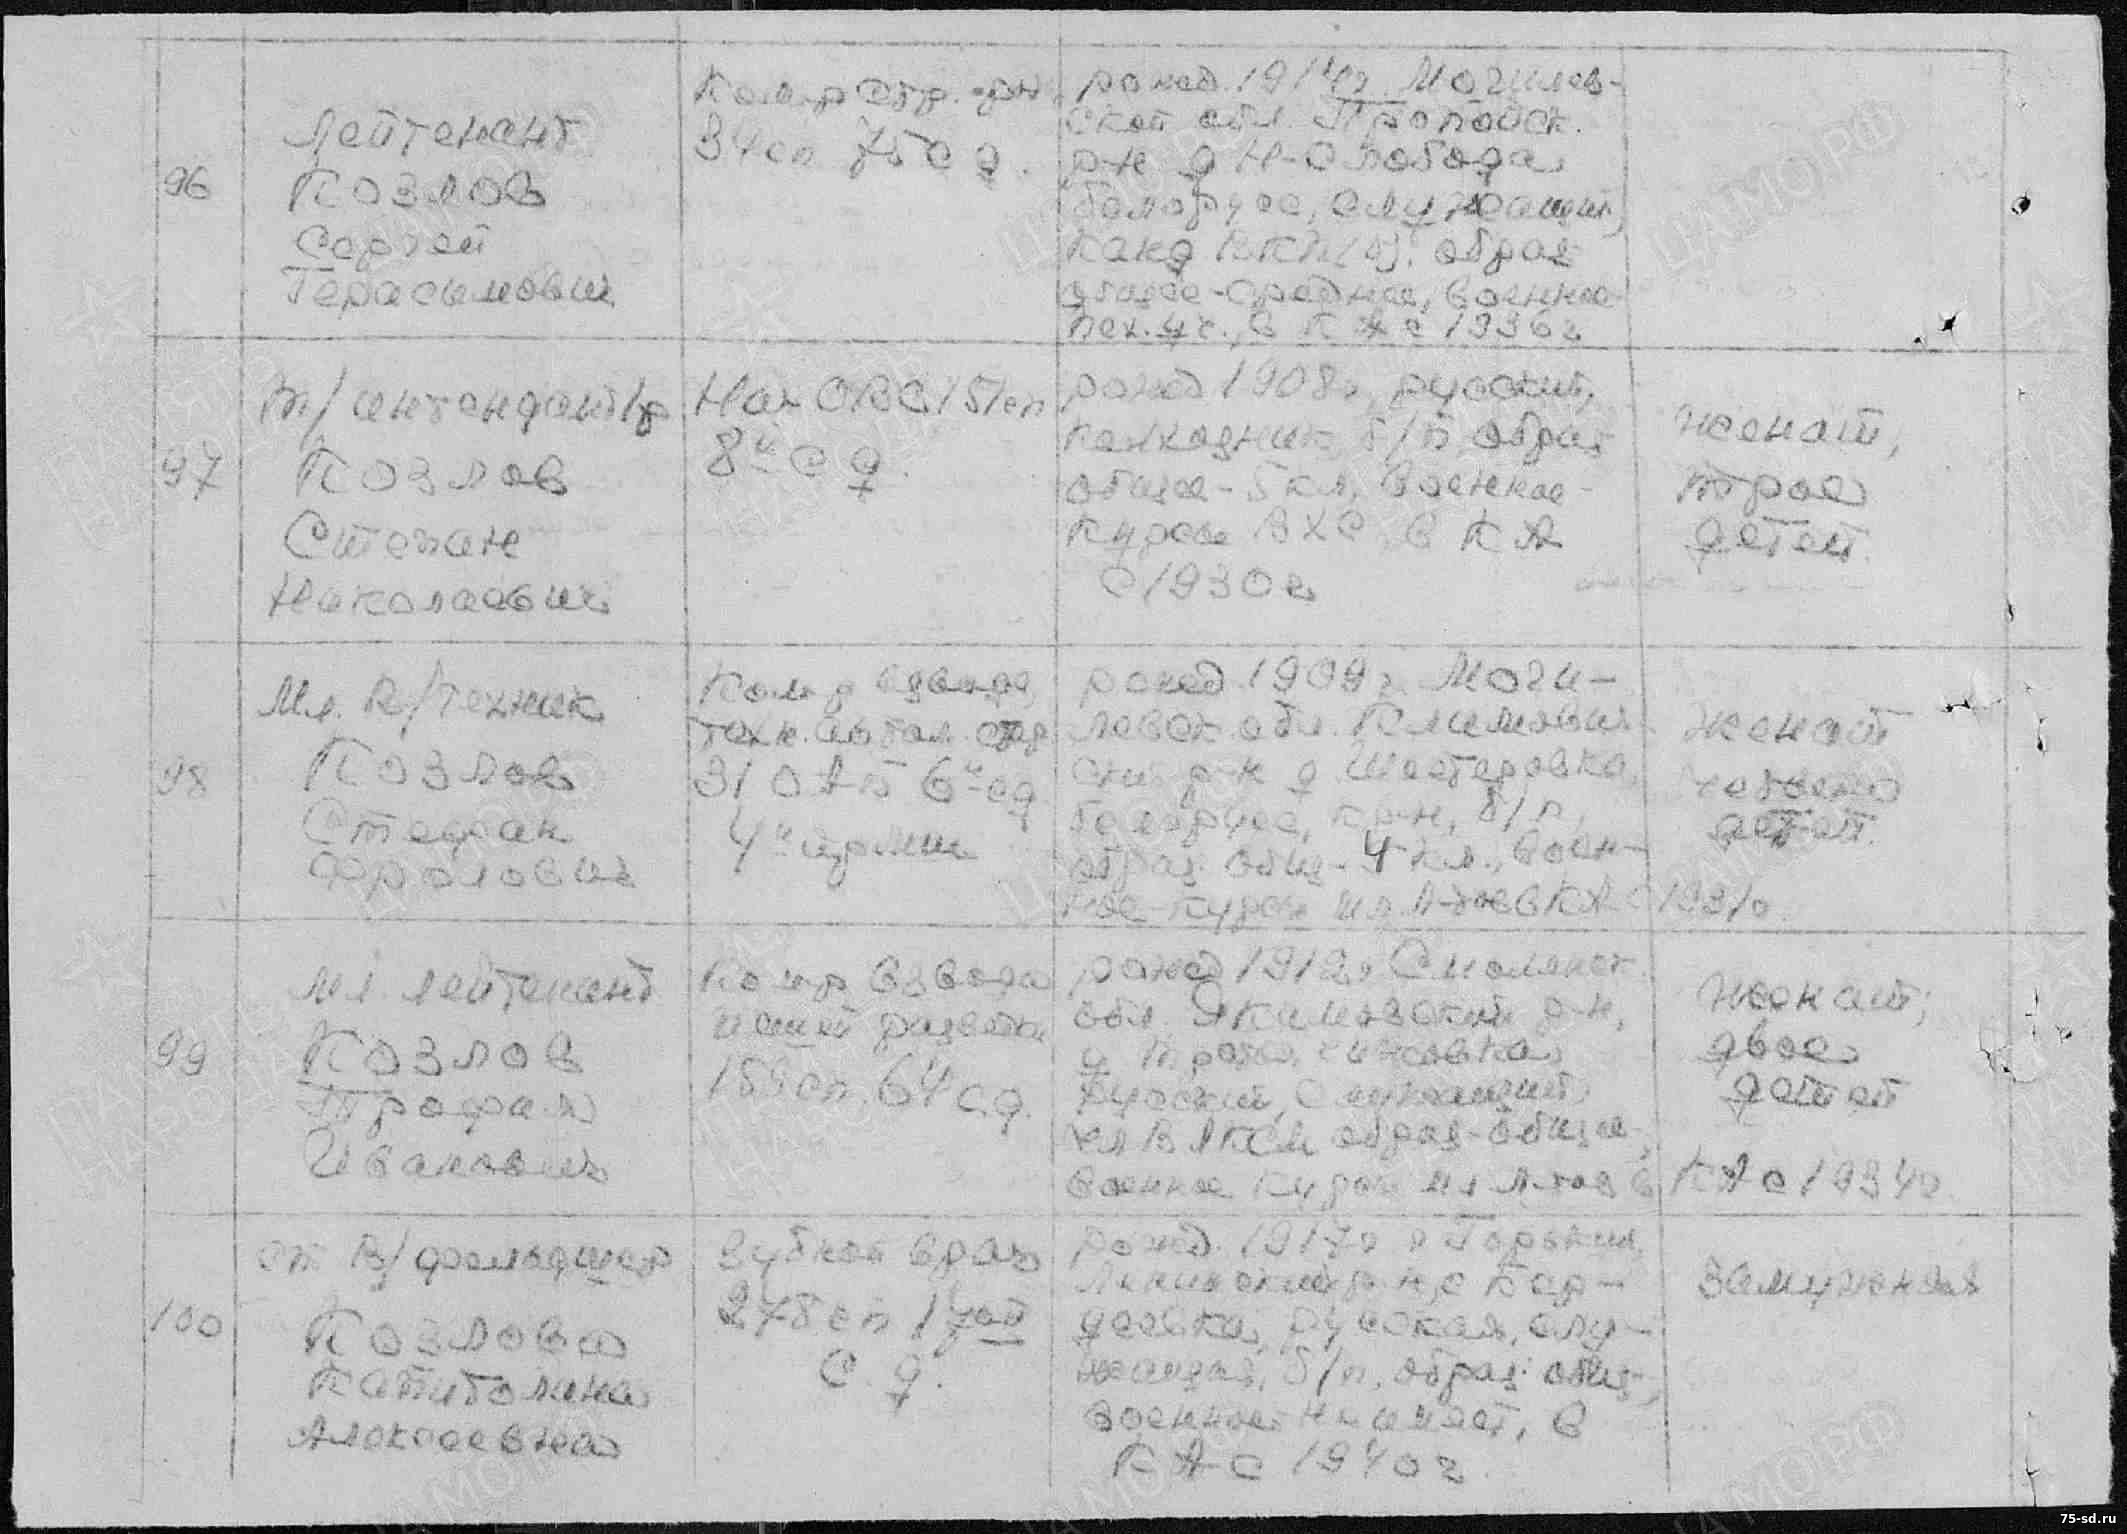 96
Лейтенант
Козлов
Сергей
Герасимович
34 сп 75 с д.
рожд. 1914г. Могилев-
ской обл. Пропойск.
р-н д Н-Слобода
белорус, служащий,
канд ВКП(б). образ
общее-среднее, военное
пех. уч., в КА с 1936г
97
т/интендант 1р
Козлов
Степан
Николаевич
Нач ОВС 151сп
8й с д.
рожд 1908г, русский,
колхозник, б/п образ
общее-5 кл, военное-
курсы ВХС, в КА
с 1930г
женат,
трое
детей.
98
Мл. в/техник
Козлов
Стефан
Фролович
Ком-р взвода
31 О А П 6й сд
4й армии
рожд. 1909г. Моги-
левск. обл. Климович-
ский р-н д. Шестеровка,
белорус, кр-н, б/п,
образ. общ-4 кл., воен-
ное-курсы мл. л-тов в КА с 1931г.
женат
четверо
детей.
99
мл. лейтенант
Козлов
Трофим
Иванович
Ком-р взвода
пешей разведки
159 сп. 64 с.д.
рожд 1912г Смоленск.
обл.
русский, служащий,
чл ВЛКСМ образ-общее-,
военное курсы мл л-тов в КА с 1934г.
женат,
двое
детей
100
ст в/фельдшер
Козлова
Капитолина
Алексеевна
Зубной врач
278 сп 17ой
с. д.
рожд. 1917г г Горький,
русская, слу-
жащая, б/п, образ: общ-,
военное не имеет, в
КА с 1940г.
замужняя
75-sd.ru